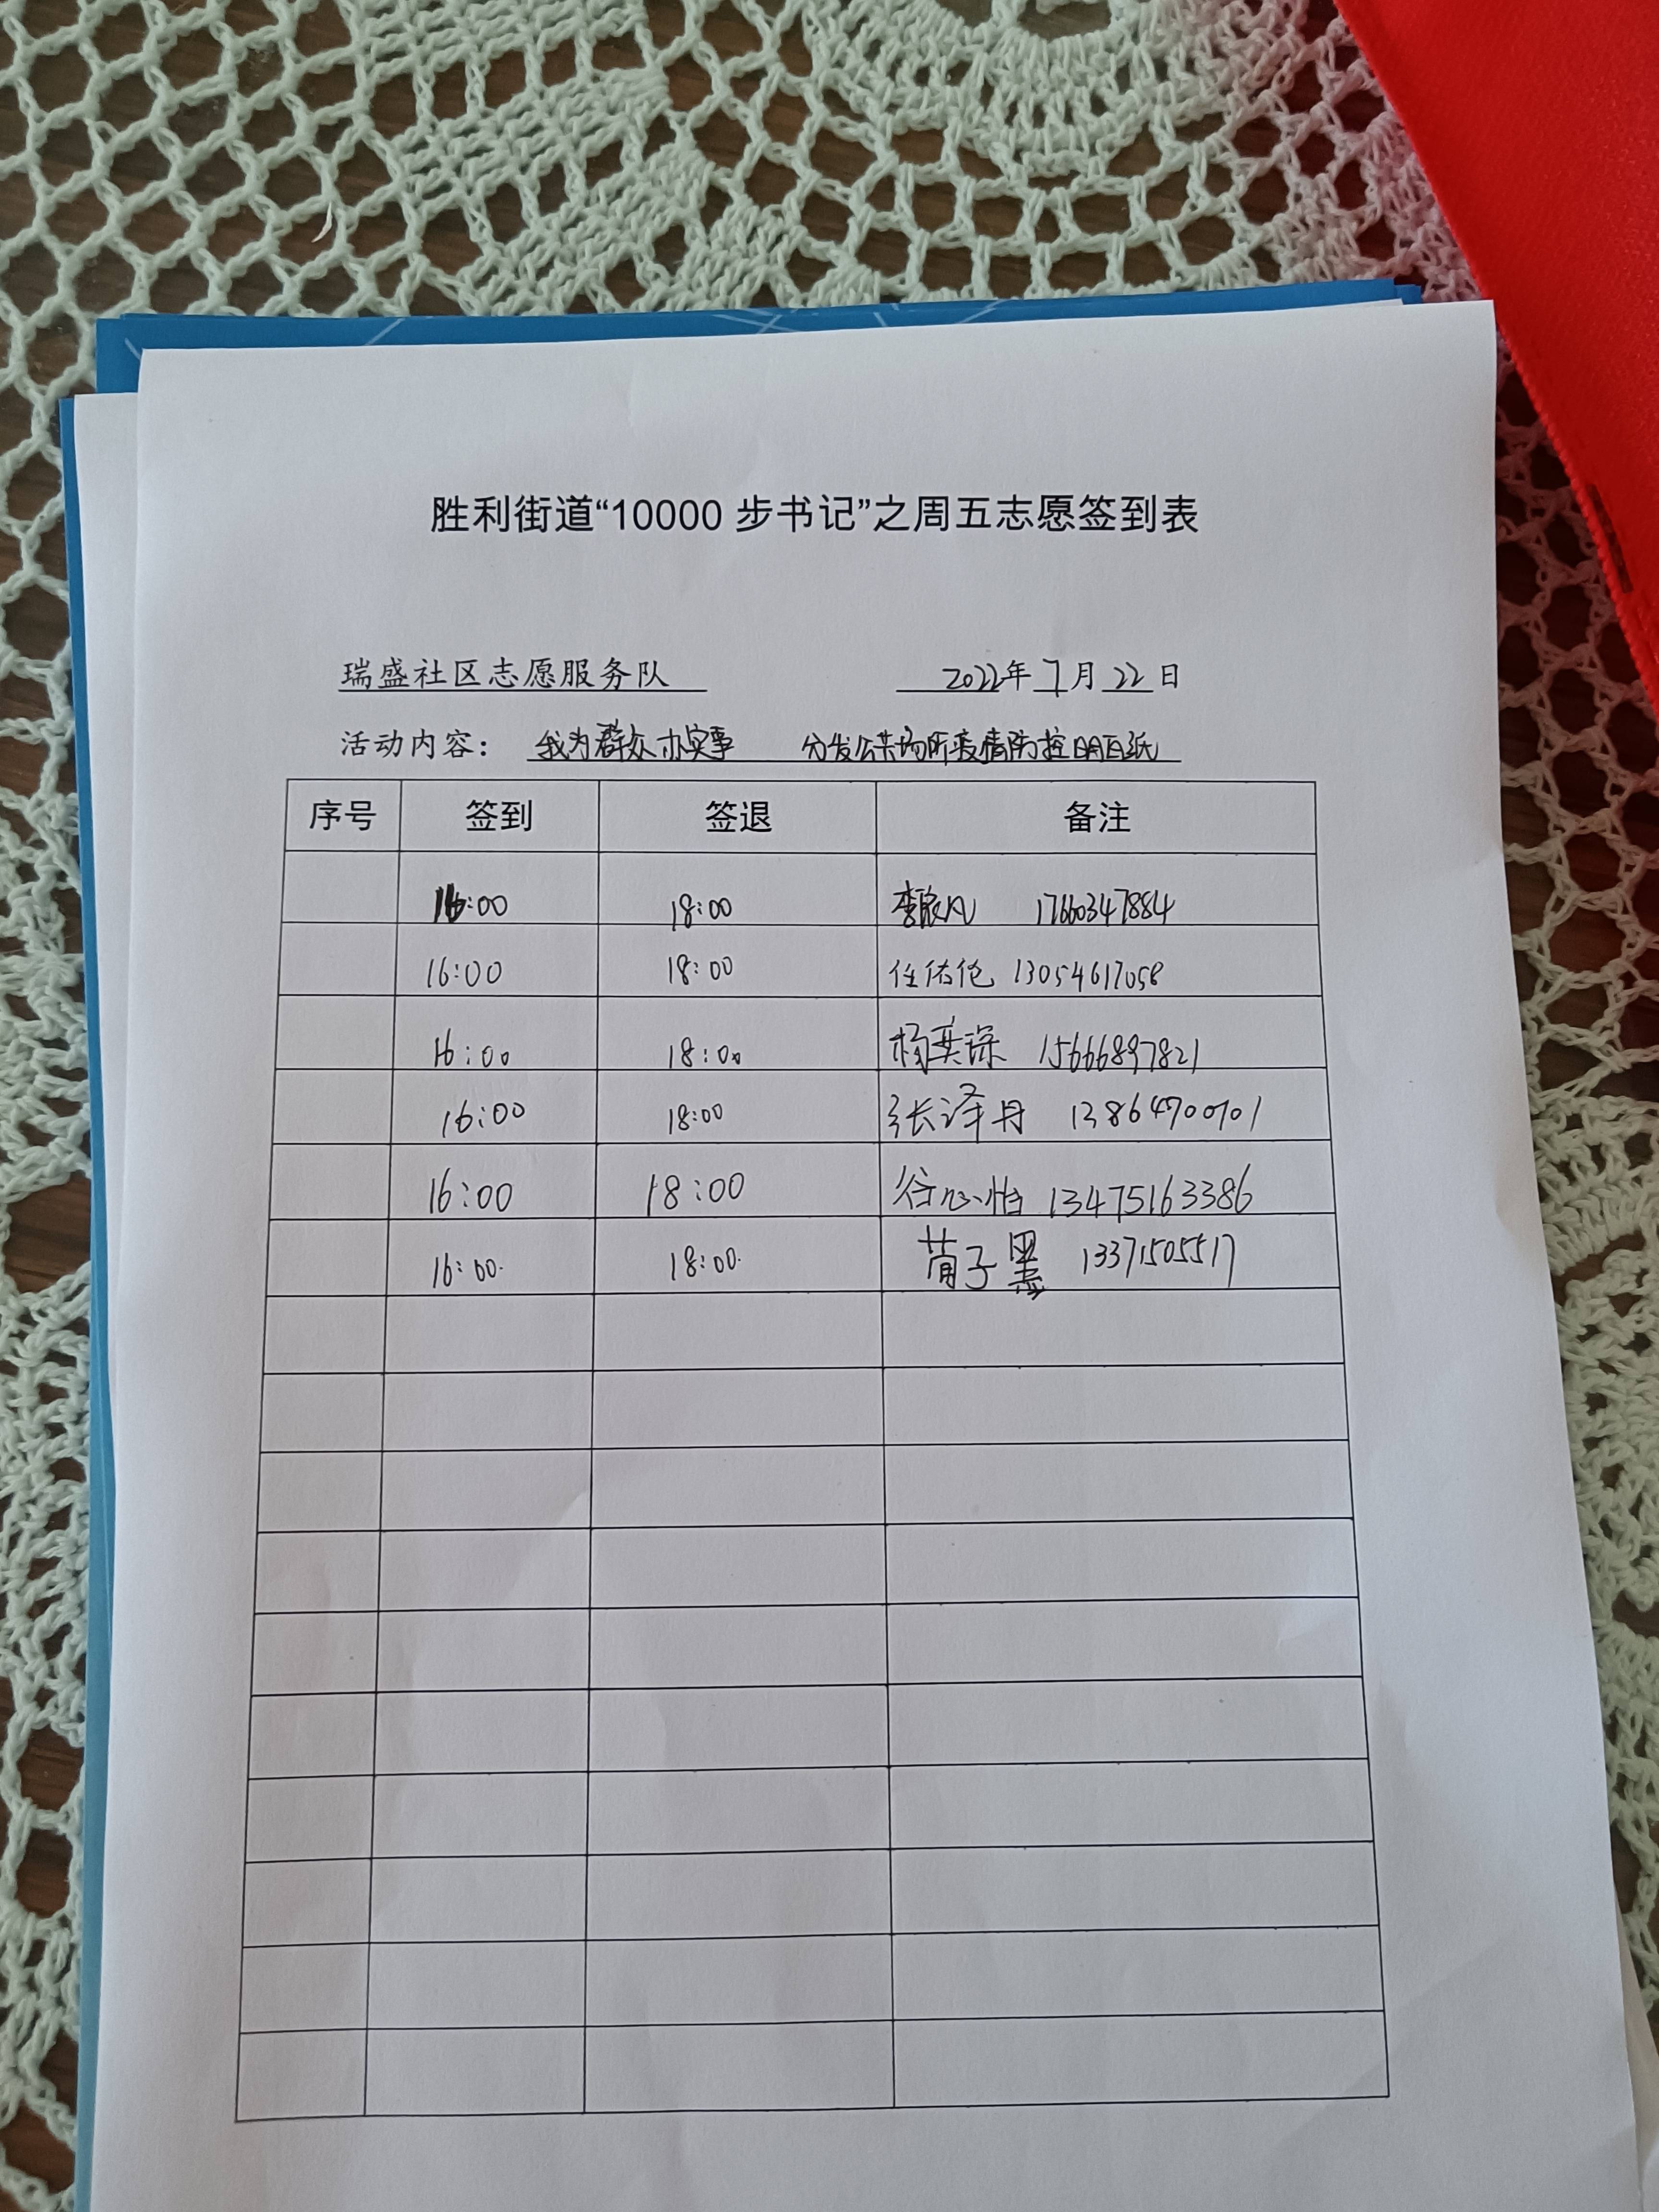 胜利街道“10000 步书记”之周五志愿签到表
瑞盛社区志愿服务队 2022年7月22日
活动内容: 我为群众办实事 分发公共场所疫情防控明白纸
序号 签到 签退 备注
16:00 18:00 李 17660347884
16:00 18:00 任佑伦 13054617058
16:00 18:00 杨奕深 15666897821
16:00 18:00 张泽丹 13864700701
16:00 18:00 谷心怡 13475163386
16:00 18:00 子墨 13371505517